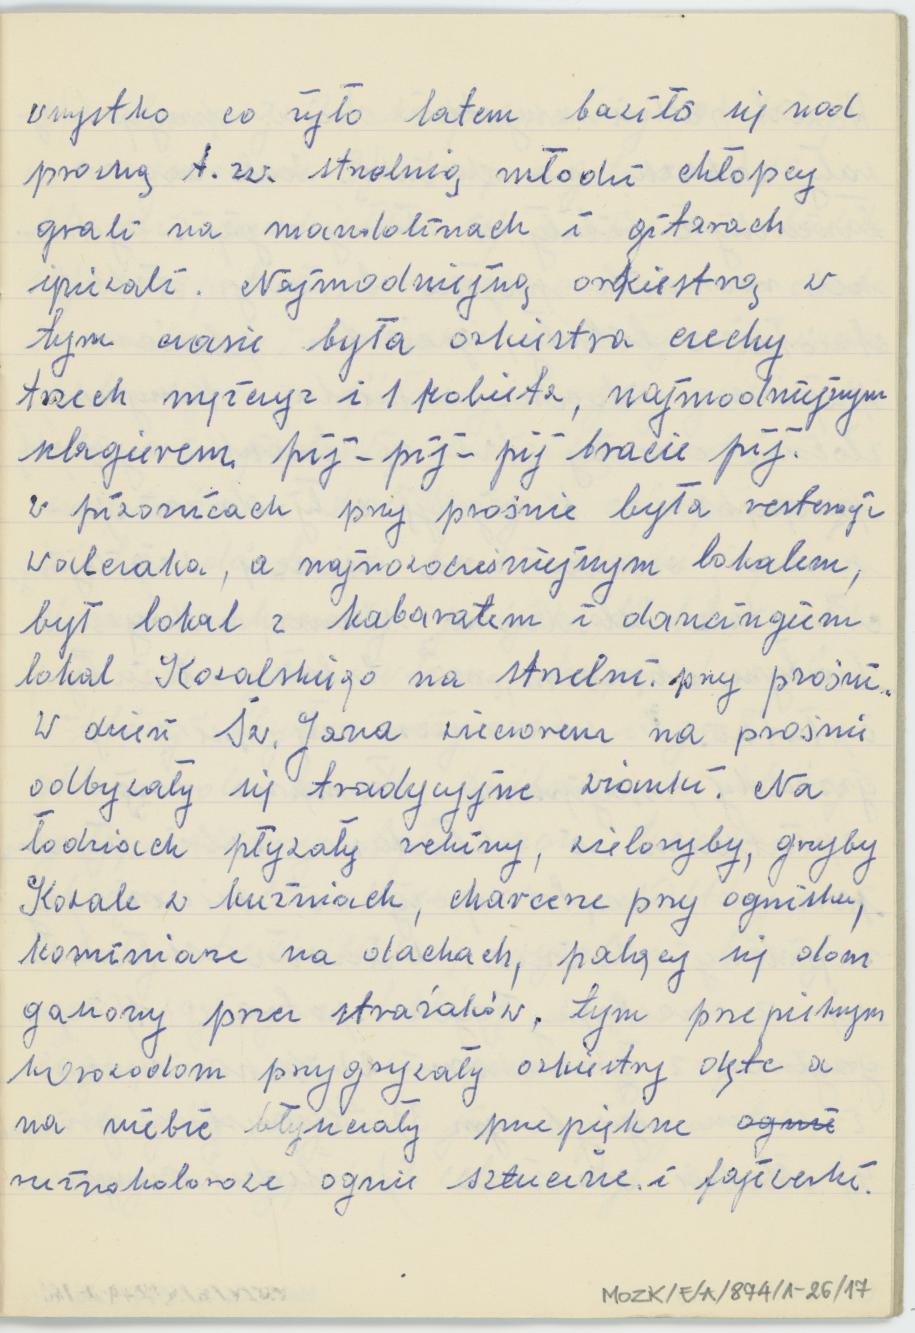 wszystko co żyło latem bawiło się nad
prosną t. zw. strzelnią młodzi chłopcy
grali na mandolinach i gitarach
śpiewali. Najmodniejszą orkiestrą w
tym czasie była orkiestra czechy
trzech mężczyz i 1 kobieta, najmodniejszym
szlagierem, pij - pij - pij bracie pij.
w piwonicach przy prośnie była
Walczaka, a najnowocześniejszym lokalem,
był lokal z kabaratem i dancingiem
lokal Kowalskiego na strzelni. przy prośni.
W dzień Św. Jana wieczorem na prośnie
odbywały się tradycyjne wianki. Na
łodziach pływały rekiny, wieloryby, grzyby
Kowale w kuźniach, charcerze przy ognisku,
kominiarze na dachach, palący się dom
gaszony przez strażaków. tym przepieknym
korowodom przygrywały orkiestry dęte a
na niebie błyszczały przepiękne ognie
różnokolorowe ognie sztuczne. i fajerwerki.
MOZK/E/A/874/1-26/17